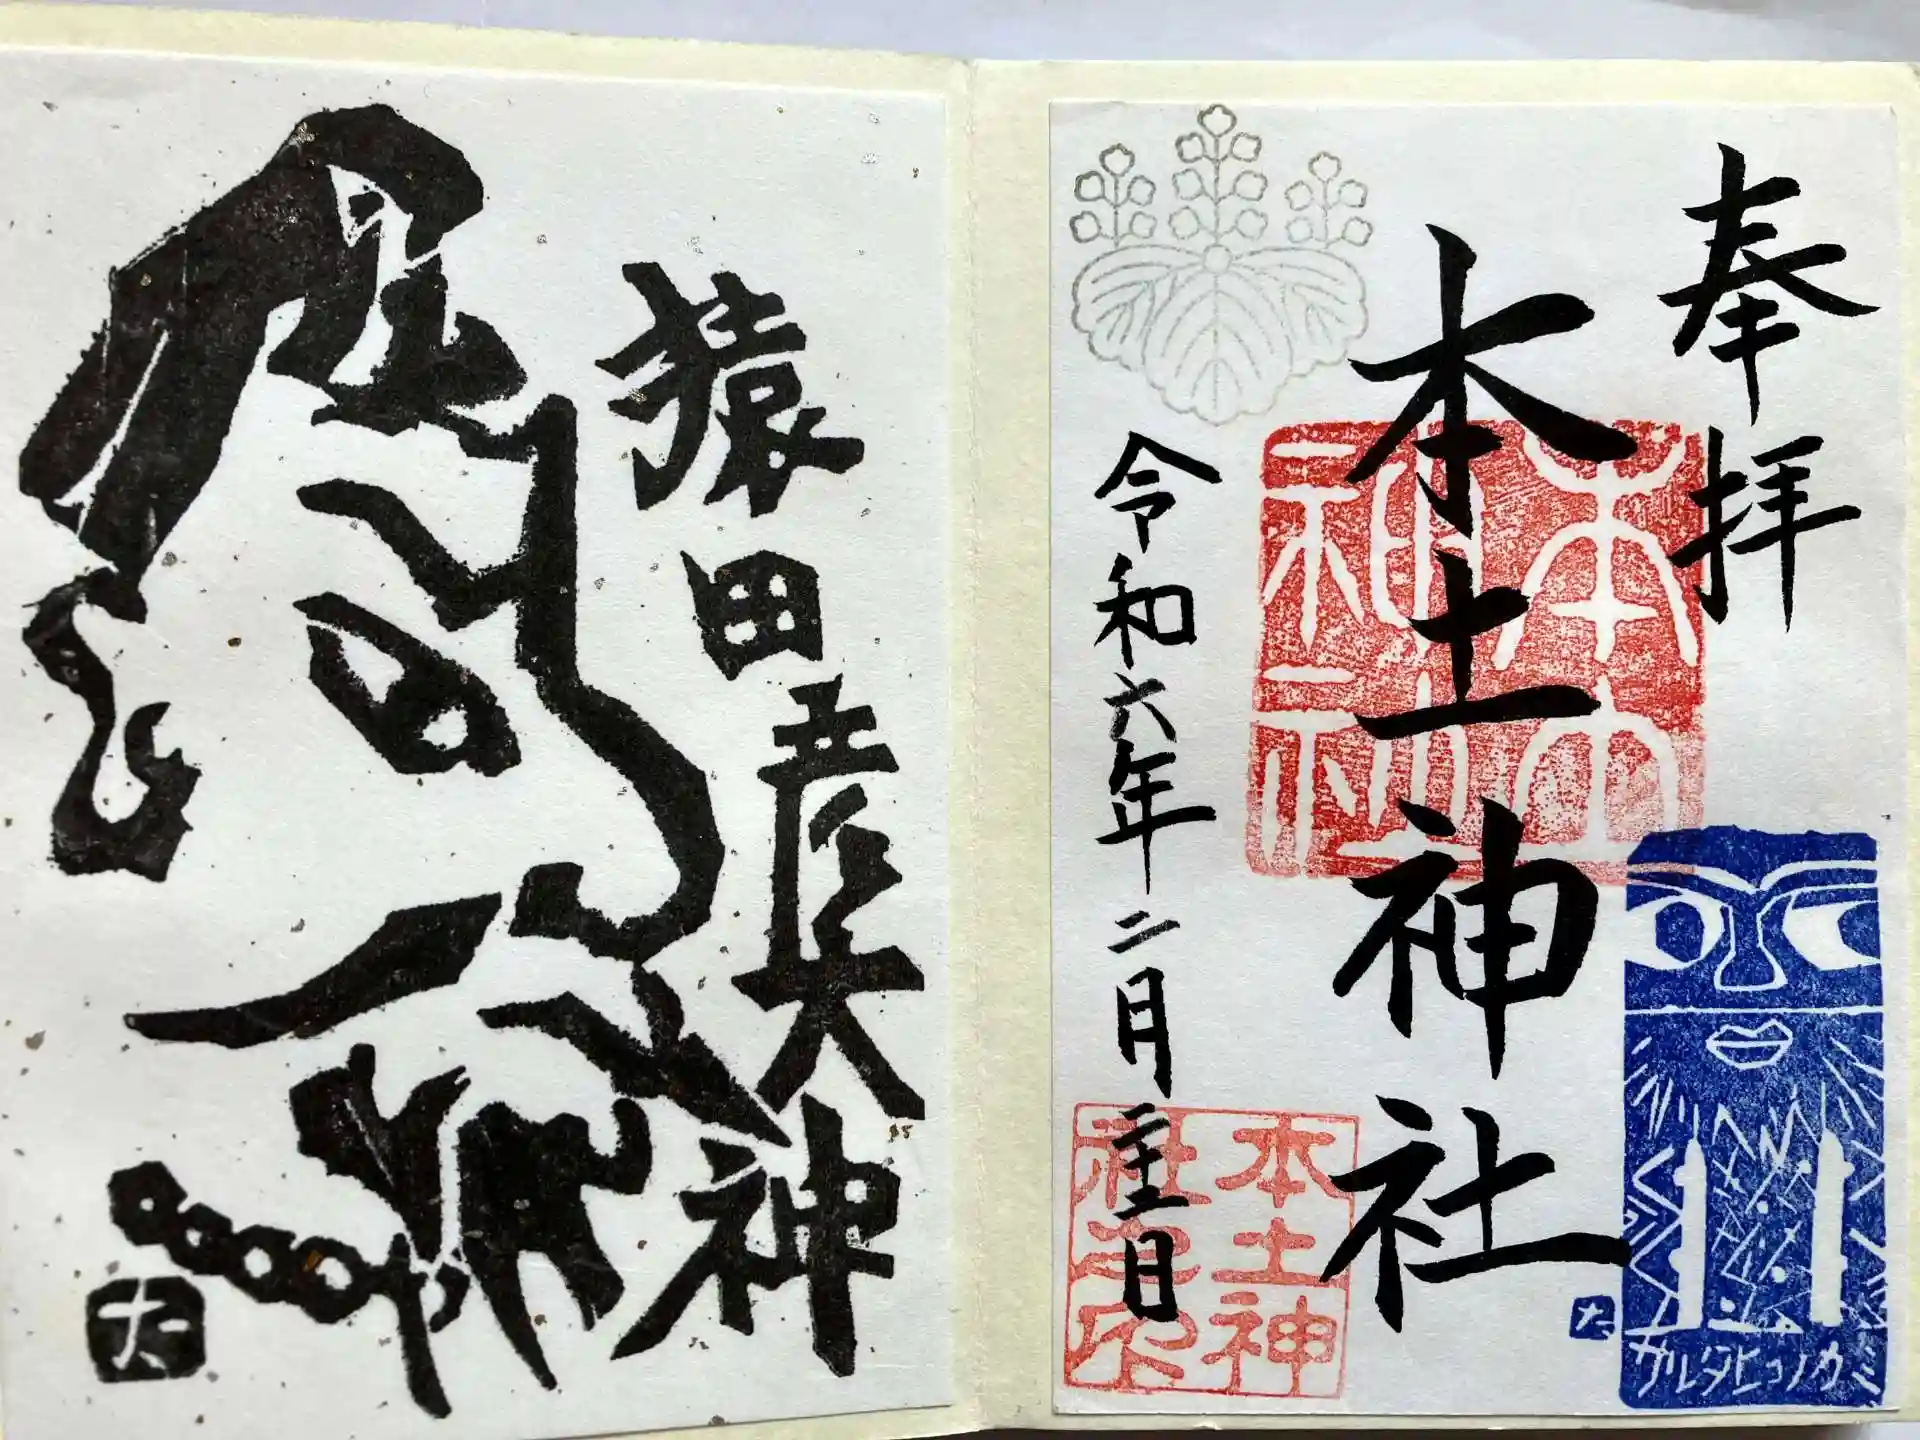 奉拝
本土神社
令和六年二月二十二日
本土
神社
本土神
社
サルタヒコノカミ
猿田彦大神